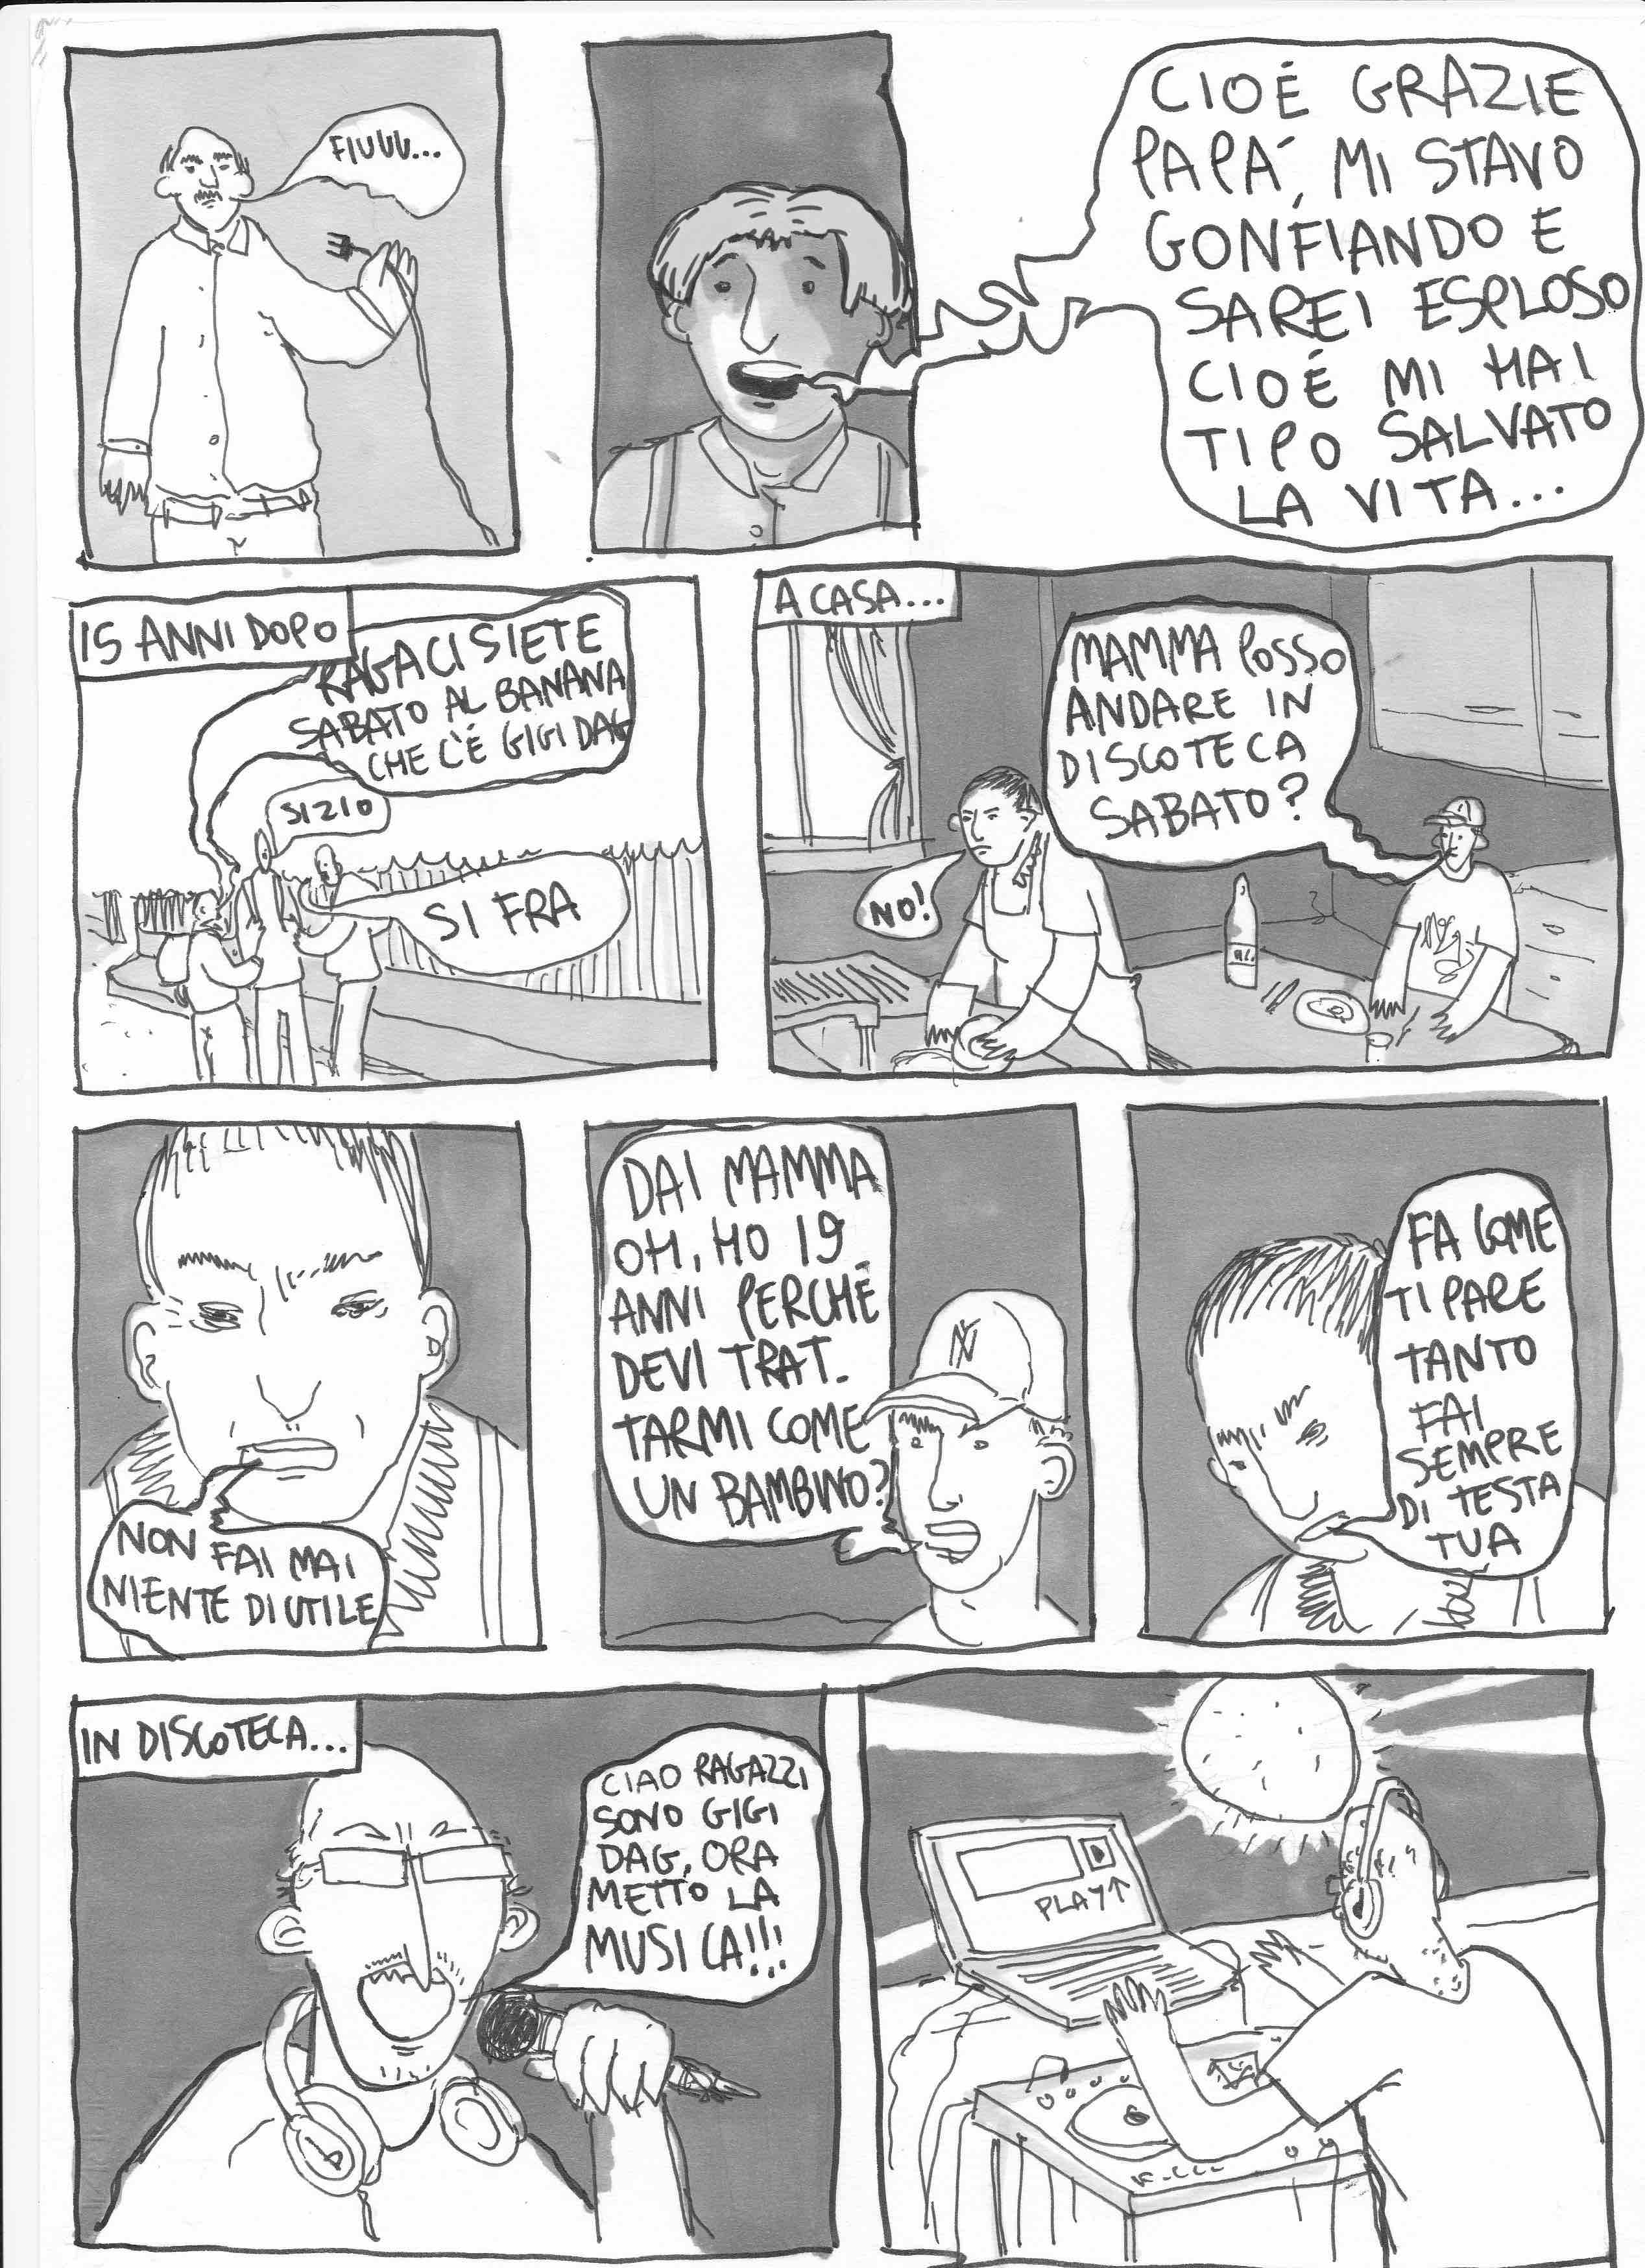 FIUUU...
CIOÉ GRAZIE
PAPÁ, MI STAVO
GONFIANDO E
SAREI ESPLOSO
CIOÉ MI HAI
TIPO SALVATO
LA VITA...
15 ANNI DOPO
RAGA CI SIETE
SABATO AL BANANA
CHE C'È GIGI DAG
SI ZIO
SI FRA
A CASA...
MAMMA POSSO
ANDARE IN
DISCOTECA
SABATO?
NO!
NON FAI MAI
NIENTE DI UTILE
DAI MAMMA
OH, HO 19
ANNI PERCHÉ
DEVI TRAT-
TARMI COME
UN BAMBINO?
NY
FA COME
TI PARE
TANTO
FAI
SEMPRE
DI TESTA
TUA
IN DISCOTECA...
CIAO RAGAZZI
SONO GIGI
DAG, ORA
METTO LA
MUSICA!!!
PLAY↑